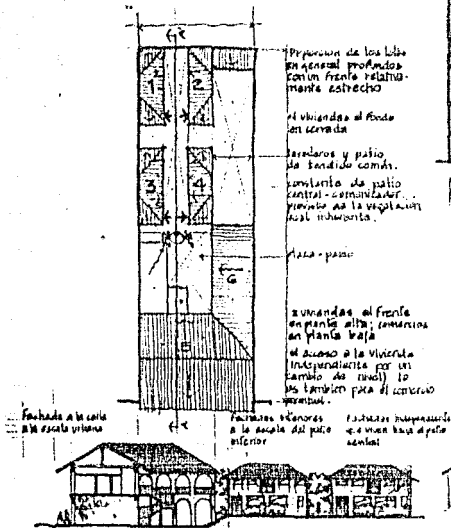 Proporcion de los lotes
en general profundos
con un frente relativa-
mente estrecho
4 viviendas al fondo
en cerrada
y patio
de tendido común.
constante de patio
central-comunicador
de la vegetación
plaza-patio
1
2
3
4
G
2 viviendas al frente
en planta alta; comercios
en planta baja
el acceso a la vivienda
independiente por un
cambio de nivel) lo
es también para el comercio
Fachada a la calle
a la escala urbana
Fachadas interiores
a la escala del patio
interior
Fachadas independientes
patio
central